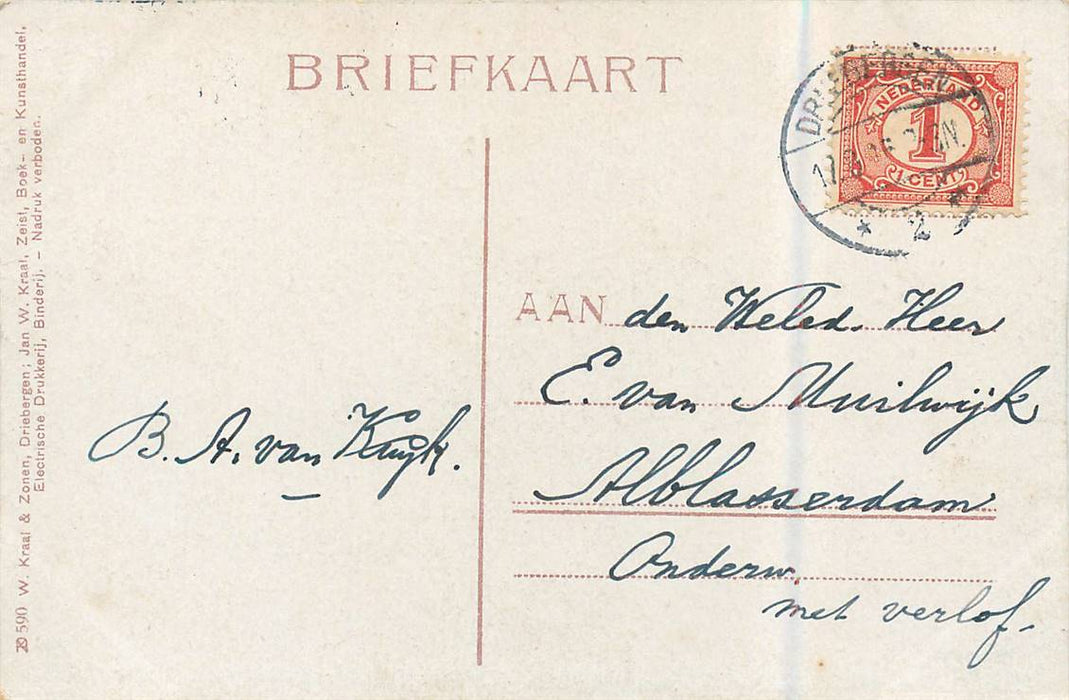 BRIEFKAART
NEDERLAND
1
1 CENT
2
AAN den Weled. Heer
E. van Muilwijk
Alblasserdam
Onderw.
met verlof.
B. A. van Kuyk.
29590 W. Kraal & Zonen, Driebergen; Jan W. Kraal, Zeist, Boek- en Kunsthandel,
Electrische Drukkerij, Binderij. – Nadruk verboden.